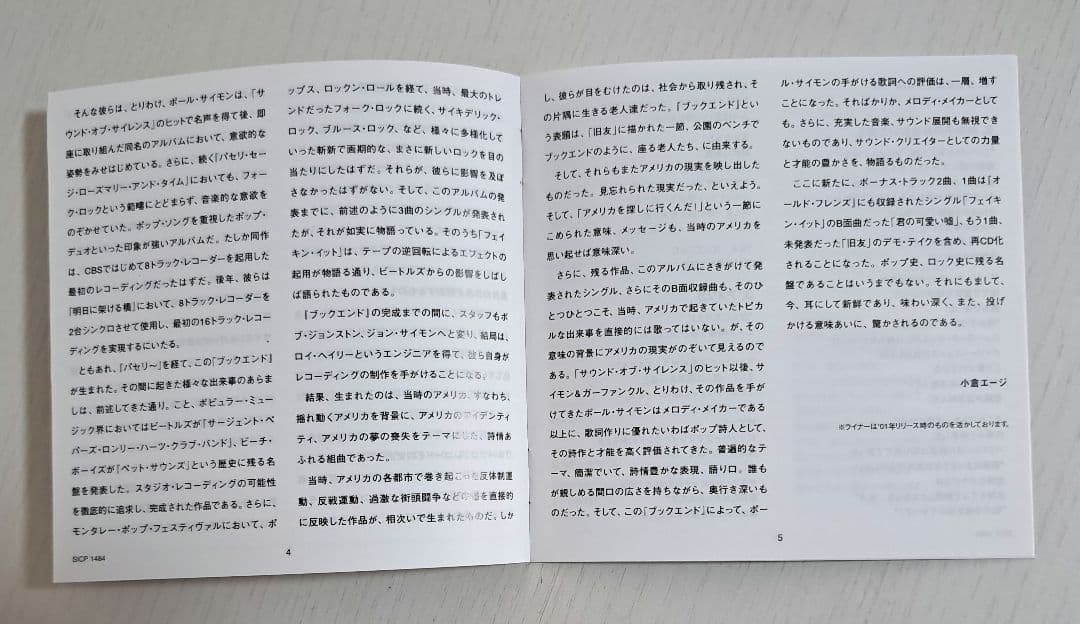 そんな彼らは、とりわけ、ポール・サイモンは、「サ
ウンド・オブ・サイレンス』のヒットで名声を得て後、即
座に取り組んだ同名のアルバムにおいて、意欲的な
姿勢をみせはじめている。さらに、続く『パセリ・セー
ジ・ローズマリー・アンド・タイム』においても、フォー
ク・ロックという範疇にとどまらず、音楽的な意欲を
のぞかせていた。ポップ・ソングを重視したポップ・
デュオといった印象が強いアルバムだ。たしか同作
は、CBSではじめて8トラック・レコーダーを起用した
最初のレコーディングだったはずだ。後年、彼らは
『明日に架ける橋』において、8トラック・レコーダーを
2台シンクロさせて使用し、最初の16トラック・レコー
ディングを実現するにいたる。
ともあれ、『パセリ〜』を経て、この『ブックエンド』
が生まれた。その間に起きた様々な出来事のあらま
しは、前述してきた通り。こと、ポピュラー・ミュー
ジック界においてはビートルズが『サージェント・ペ
パーズ・ロンリー・ハーツ・クラブ・バンド』、ビーチ・
ボーイズが『ペット・サウンズ』という歴史に残る名
盤を発表した。スタジオ・レコーディングの可能性
を徹底的に追求し、完成された作品である。さらに、
モンタレー・ポップ・フェスティヴァルにおいて、ポ
SICP 1484
ップス、ロックン・ロールを経て、当時、最大のトレ
ンドだったフォーク・ロックに続く、サイキデリック・
ロック、ブルース・ロック、など、様々に多様化して
いった斬新で画期的な、まさに新しいロックを目の
当たりにしたはずだ。それらが、彼らに影響を及ぼ
さなかったはずがない。そして、このアルバムの発
表までに、前述のように3曲のシングルが発表され
たが、それが如実に物語っている。そのうち「フェイ
キン・イット」は、テープの逆回転によるエフェクトの
起用が物語る通り、ビートルズからの影響をしばし
ば語られたものである。
『ブックエンド』の完成までの間に、スタッフもボ
ブ・ジョンストン、ジョン・サイモンへと変り、結局は、
ロイ・ヘイリーというエンジニアを得て、彼ら自身が
レコーディングの制作を手がけることになる。
結果、生まれたのは、当時のアメリカ、すなわち、
揺れ動くアメリカを背景に、アメリカのアイデンティ
ティ、アメリカの夢の喪失をテーマにした、詩情あ
ふれる組曲であった。
当時、アメリカの各都市で巻き起こった反体制運
動、反戦運動、過激な街頭闘争などの を直接的
に反映した作品が、相次いで生まれたものだ。しか
4
し、彼らが目をむけたのは、社会から取り残され、そ
の片隅に生きる老人達だった。『ブックエンド』とい
う表題は、「旧友」に描かれた一節、公園のベンチで
ブックエンドのように、座る老人たち、に由来する。
そして、それらもまたアメリカの現実を映し出した
ものだった。見忘れられた現実だった、といえよう。
そして、「アメリカを探しに行くんだ!」という一節に
こめられた意味、メッセージも、当時のアメリカを
思い起せば意味深い。
さらに、残る作品、このアルバムにさきがけて発
表されたシングル、さらにそのB面収録曲も、そのひ
とつひとつこそ、当時、アメリカで起きていたトピカ
ルな出来事を直接的には歌ってはいない。が、その
意味の背景にアメリカの現実がのぞいて見えるので
ある。「サウンド・オブ・サイレンス」のヒット以後、サ
イモン&ガーファンクル、とりわけ、その作品を手が
けてきたポール・サイモンはメロディ・メイカーである
以上に、歌詞作りに優れたいわばポップ詩人として、
その詩作と才能を高く評価されてきた。普遍的なテ
ーマ、簡潔でいて、詩情豊かな表現、語り口。誰も
が親しめる間口の広さを持ちながら、奥行き深いも
のだった。そして、この『ブックエンド』によって、ポー
ル・サイモンの手がける歌詞への評価は、一層、増す
ことになった。そればかりか、メロディ・メイカーとして
も。さらに、充実した音楽、サウンド展開も無視でき
ないものであり、サウンド・クリエイターとしての力量
と才能の豊かさを、物語るものだった。
ここに新たに、ボーナス・トラック2曲、1曲は『オ
ールド・フレンズ』にも収録されたシングル「フェイキ
ン・イット」のB面曲だった「君の可愛い嘘」、もう1曲、
未発表だった「旧友」のデモ・テイクを含め、再CD化
されることになった。ポップ史、ロック史に残る名
盤であることはいうまでもない。それにもまして、
今、耳にして新鮮であり、味わい深く、また、投げ
かける意味あいに、驚かされるのである。
小倉エージ
※ライナーは'01年リリース時のものを活かしております。
5